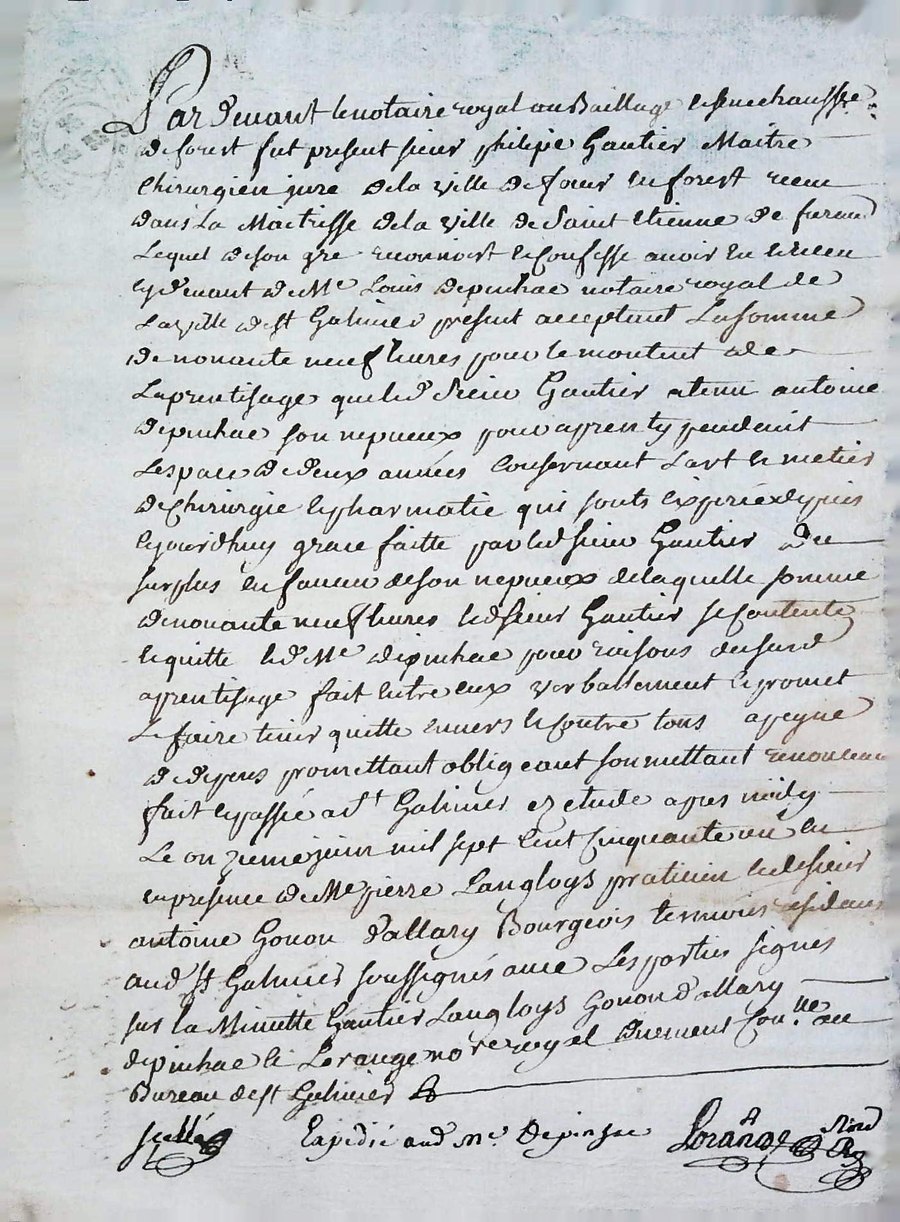 Par devant le notaire royal au Baillage et senechaussée
de forest fut present sieur philipe Gautier Maitre
Chirurgien juré de la ville de en forest receu
dans La Maitrisse de la ville de Saint etienne de furand
Lequel de son gré reconnoist et Confesse avoir eu et receu
cy devant de Me Louis depinhac notaire royal de
La ville de St Galmier present acceptant La somme
de nonante neuf livres pour le montent de
Laprentisage que led Sieur Gautier a tenu antoine
depinhac son nepueux pour aprenty pendent
Lespace de deux années Consernant Lart et metier
de Chirurgie et pharmatie qui sonts expiriéé depuis
cejourdhuy grace faitte par led sieur Gautier du
surplus en faveur de son nepueux de laquelle somme
de nonante neuf livres led sieur Gautier se Contente
et quitte led Me depinhac pour raisons dususd
aprentisage fait entre eux verballement et promet
Le faire tenir quitte envers et Contre tous a peyne
de depens promettant obligeant soumettant renonceant
fait et passé a St Galmier ez etude apres midy
Le onzieme juin mil sept Cent Cinquante un en
en presence de Me pierre Langloys praticien et de sieur
antoine Gonon d'allary Bourgeois temoins residens
aud St Galmier soussignés avec Les parties signes
sur la Minutte Gautier Langloys Gonon d'allary
depinhac et Lorange no.re royal duement Con.lle au
Bureau de St Galmier
scellé Expedié aud Me Depinhac Lorange Nore